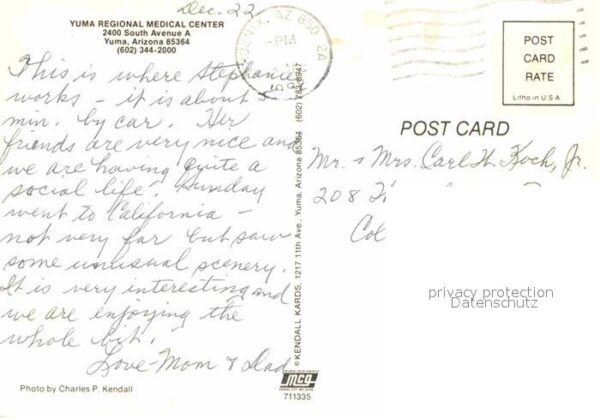 Dec. 22
YUMA REGIONAL MEDICAL CENTER
2400 South Avenue A
Yuma, Arizona 85364
(602) 344-2000
This is where Stephanie
works - it is about 5
min. by car. Her
friends are very nice and
we are having quite a
social life. Sunday
went to California -
not very far but saw
some unusual scenery.
It is very interesting and
we are enjoying the
whole bit.
Love - Mom & Dad
Photo by Charles P. Kendall
©KENDALL KARDS, 1217 11th Ave., Yuma, Arizona 85364 (602) 783-8947
mcg
711335
AZ 850
PM
POST
CARD
RATE
Litho in U.S.A.
POST CARD
Mr. & Mrs. Carl H. Koch, Jr.
208
Col
privacy protection
Datenschutz